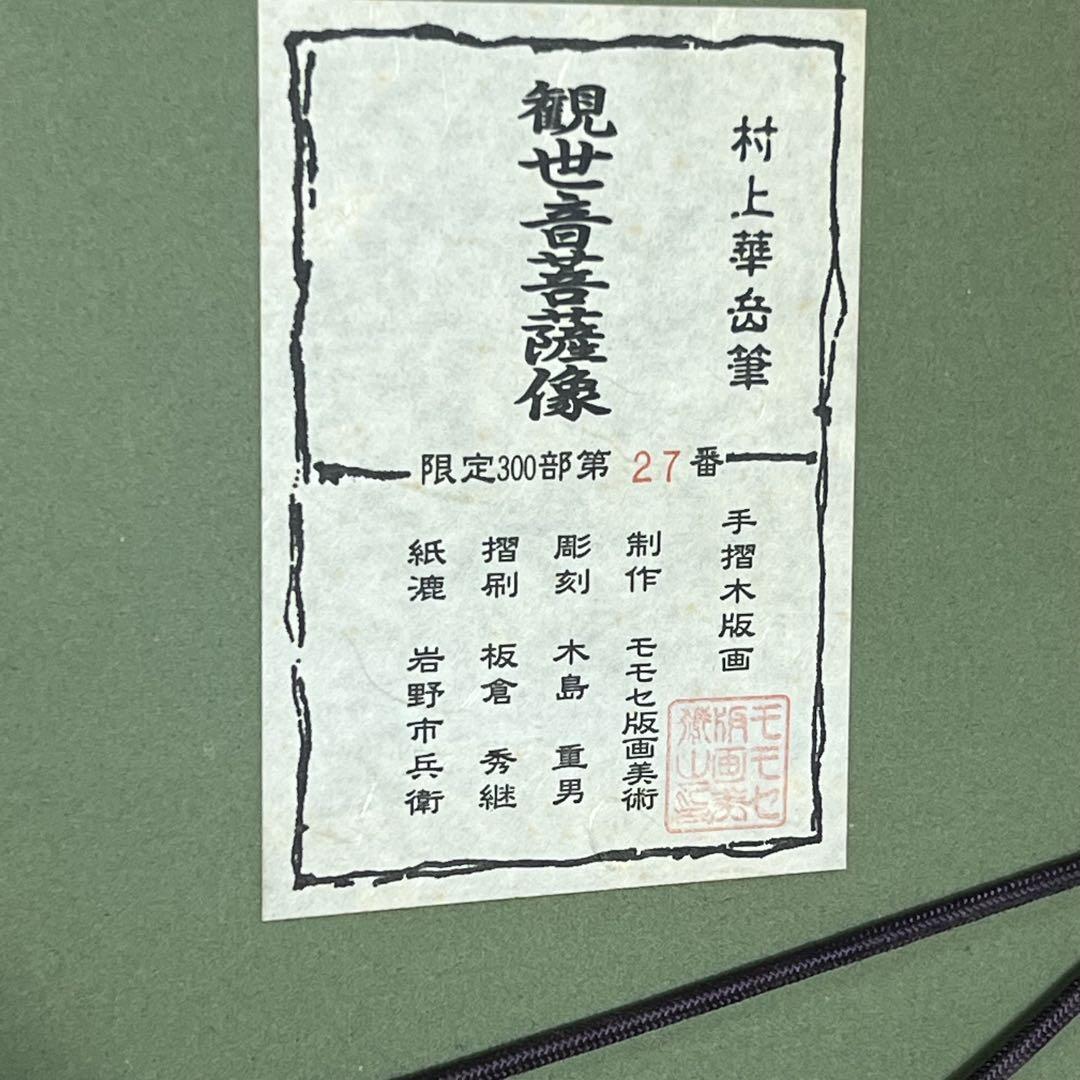 村上華岳筆
観世音菩薩像
限定300部第 27 番
手摺木版画
制作 モモセ版画美術
彫刻 木島 重男
摺刷 板倉 秀継
紙漉 岩野市兵衛
モモセ
版画美